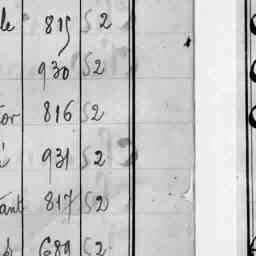 le 815 S2
930 S2
tor 816 S2
i 931 S2
ant 817 S2
689 S2